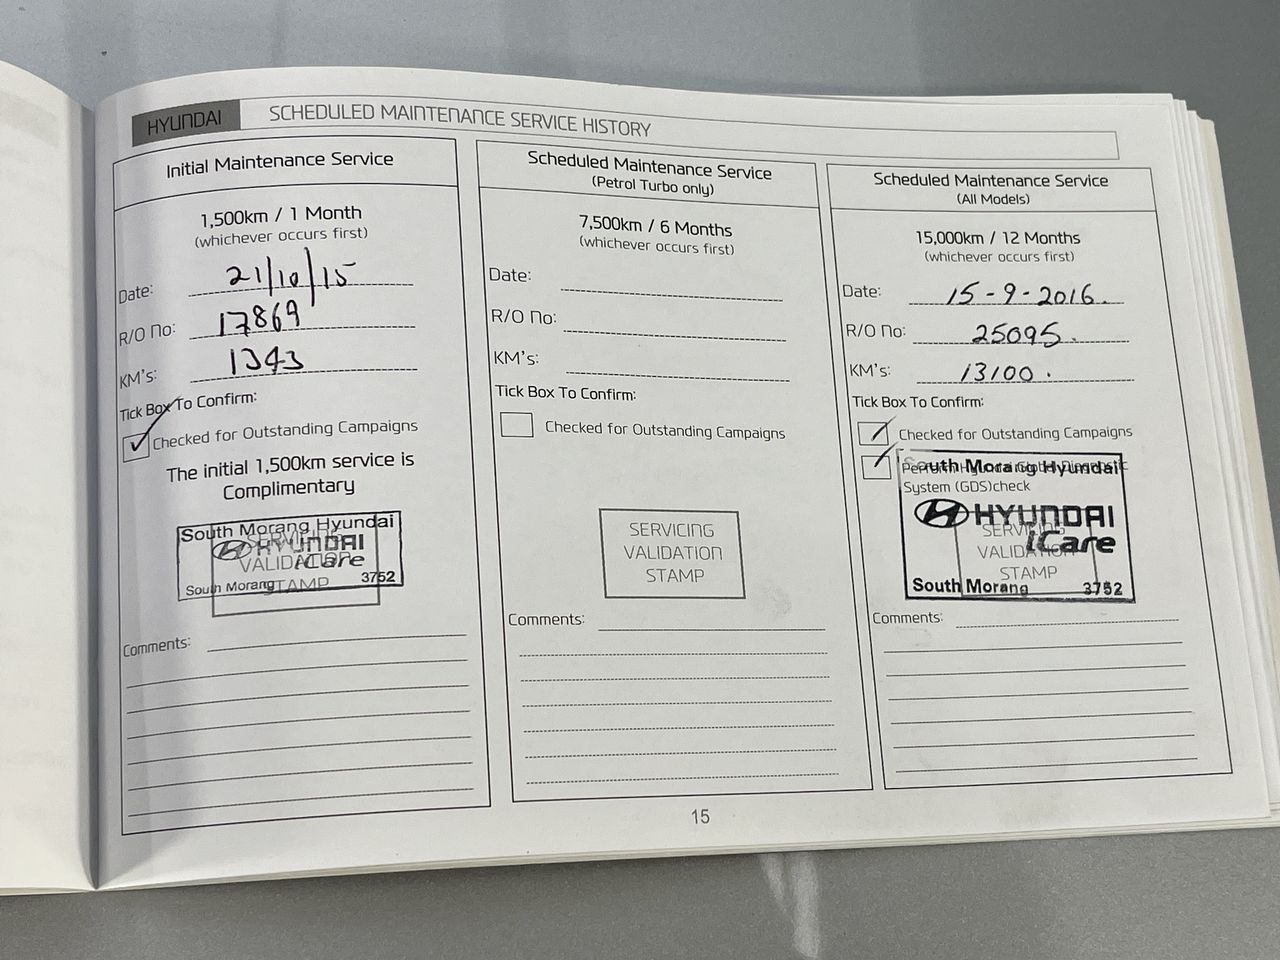 HYUNDAI
SCHEDULED MAINTENANCE SERVICE HISTORY
Initial Maintenance Service
1,500km / 1 Month
(whichever occurs first)
Date: 21/10/15
R/O No: 17869
KM's: 1343
Tick Box To Confirm:
Checked for Outstanding Campaigns
The initial 1,500km service is
Complimentary
South Morang Hyundai
HYUNDAI
iCare
South Morang 3752
SERVICING
VALIDATION
STAMP
Comments:
Scheduled Maintenance Service
(Petrol Turbo only)
7,500km / 6 Months
(whichever occurs first)
Date:
R/O No:
KM's:
Tick Box To Confirm:
Checked for Outstanding Campaigns
SERVICING
VALIDATION
STAMP
Comments:
Scheduled Maintenance Service
(All Models)
15,000km / 12 Months
(whichever occurs first)
Date: 15-9-2016.
R/O No: 25095.
KM's: 13100.
Tick Box To Confirm:
Checked for Outstanding Campaigns
Perform Hyundai Global Diagnostic
System (GDS)check
South Morang Hyundai
HYUNDAI
iCare
South Morang 3752
SERVICING
VALIDATION
STAMP
Comments:
15